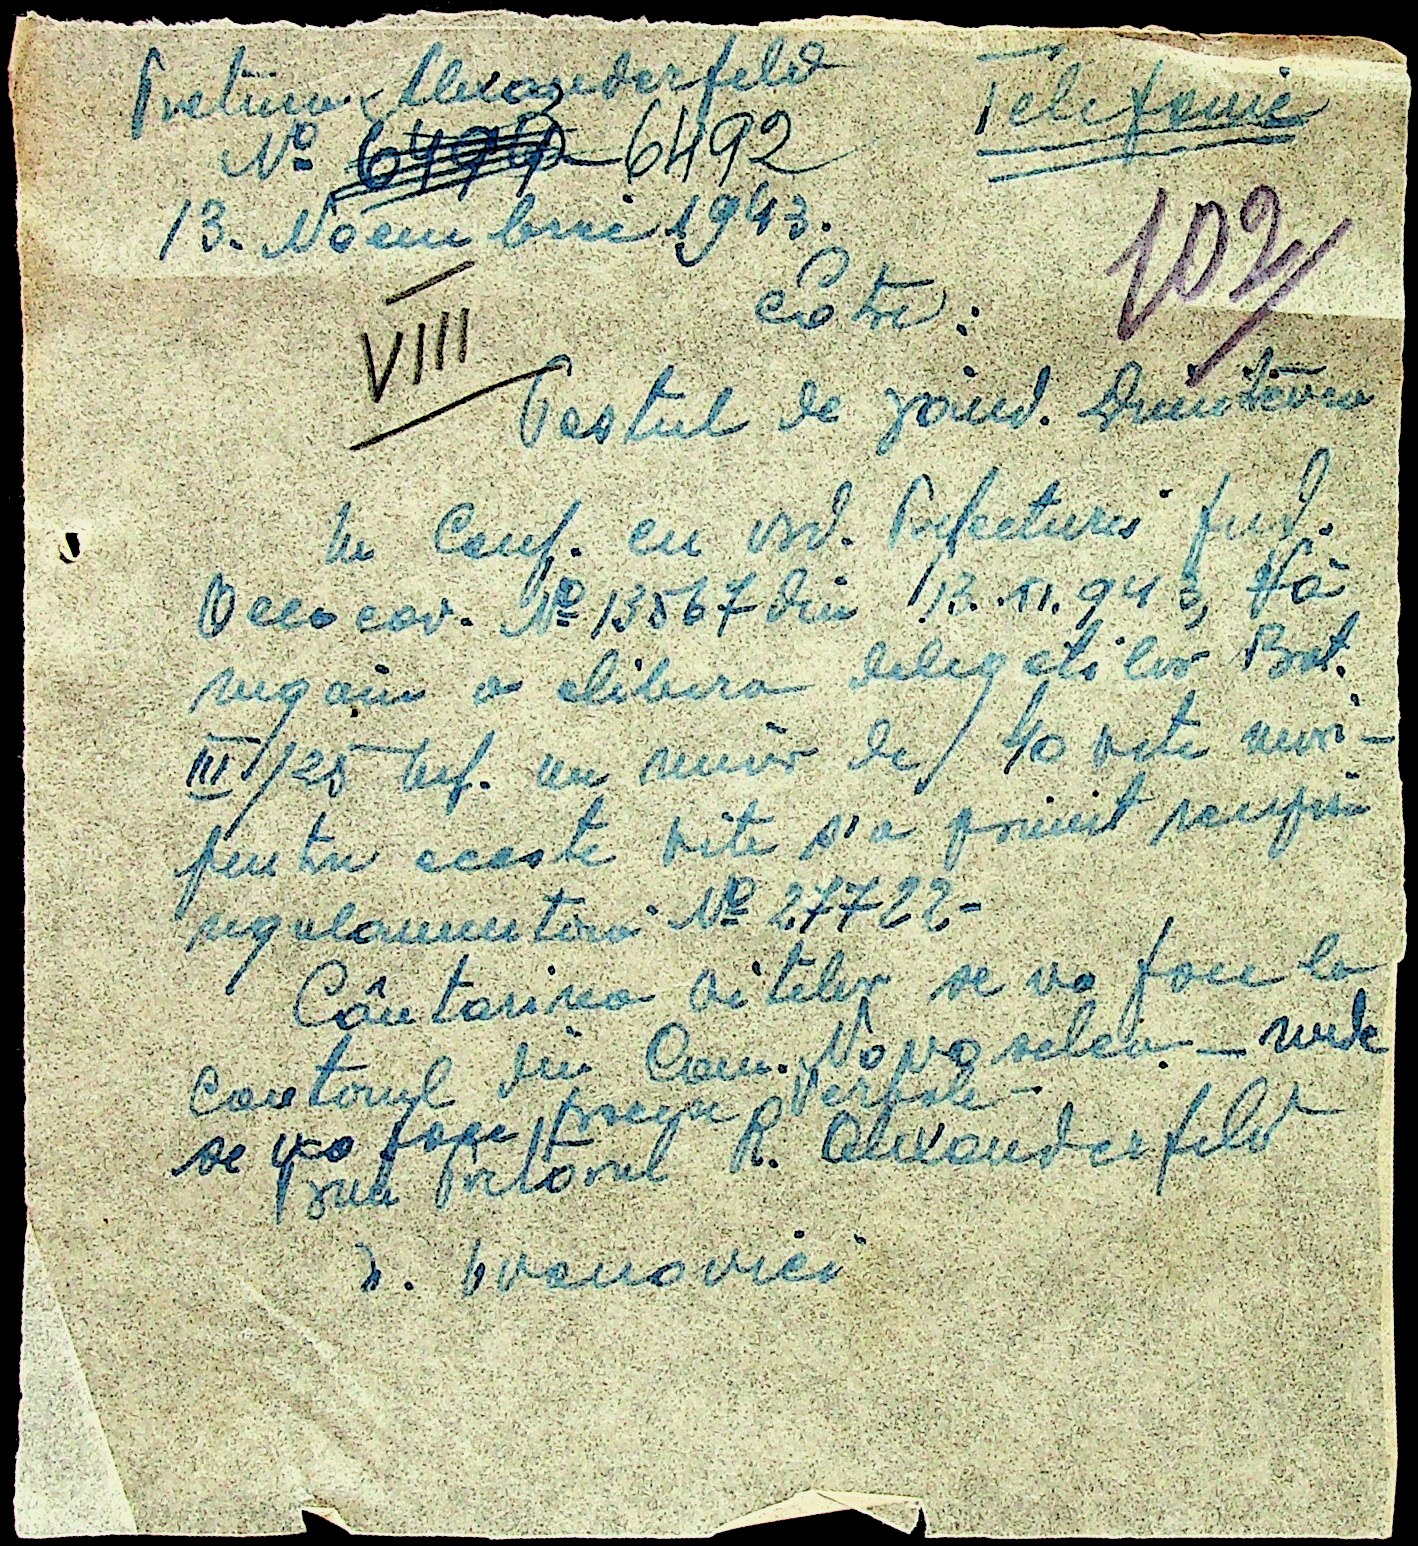 Pretura Alexanderfeld
Telefonic
Nº 6492
13. Noembrie 1943.
102
Către:
VIII
Postul de jand. Dimitrovca
In Conf. cu ord. Prefecturei Jud.
Oceacov. Nº 13567 din 13.XI.943, Vă
rugăm a elibera delegatilor Bat.
III/25 Inf. un număr de 40 vite
pentru aceste vite s'a primit
regulamentara Nº 27722-
Cântarirea vitelor se va face la
cantarul din Com. Novoselca - unde
se va face proces Verbale -
Prim Pretorul R. Alexanderfeld
Ivanovici